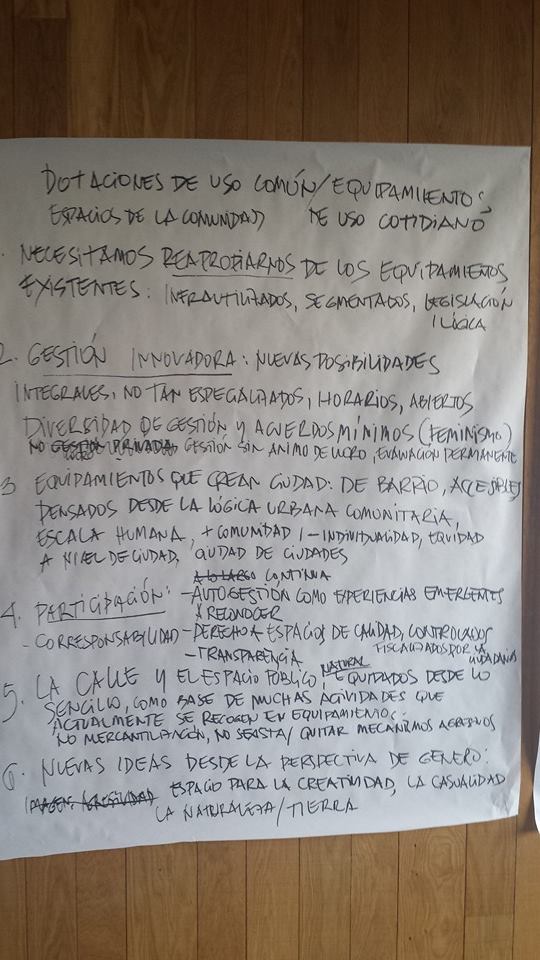 DOTACIONES DE USO COMÚN/EQUIPAMIENTOS
ESPACIOS DE LA COMUNIDAD DE USO COTIDIANO
. NECESITAMOS REAPROPIARNOS DE LOS EQUIPAMIENTOS
EXISTENTES: INFRAUTILIZADOS, SEGMENTADOS, LEGISLACIÓN
/ LÓGICA
2. GESTIÓN INNOVADORA: NUEVAS POSIBILIDADES
INTEGRALES, NO TAN ESPECIALIZADOS, HORARIOS, ABIERTOS
DIVERSIDAD DE GESTIÓN Y ACUERDOS MÍNIMOS (FEMINISMO)
NO GESTIÓN PRIVADA, GESTIÓN SIN ANIMO DE LUCRO, EVALUACIÓN PERMANENTE
3 EQUIPAMIENTOS QUE CREAN CIUDAD: DE BARRIO, ACCESIBLES
PENSADOS DESDE LA LÓGICA URBANA COMUNITARIA,
ESCALA HUMANA, + COMUNIDAD / - INDIVIDUALIDAD, EQUIDAD
A NIVEL DE CIUDAD, CIUDAD DE CIUDADES
A LO LARGO CONTINUA
4. PARTICIPACIÓN: - AUTOGESTIÓN COMO EXPERIENCIAS EMERGENTES
A RECONOCER
- CORRESPONSABILIDAD - DERECHO A ESPACIOS DE CALIDAD, CONTROLADOS
FISCALIZADOS POR LA CIUDADANÍA
- TRANSPARENCIA
5. LA CALLE Y EL ESPACIO PÚBLICO, NATURAL EQUIPADOS DESDE LO
SENCILLO, COMO BASE DE MUCHAS ACTIVIDADES QUE
ACTUALMENTE SE RECOGEN EN EQUIPAMIENTOS.
NO MERCANTILIZACIÓN, NO SEXISTA/ QUITAR MECANISMOS AGRESIVOS
6. NUEVAS IDEAS DESDE LA PERSPECTIVA DE GENERO:
ESPACIO PARA LA CREATIVIDAD, LA CASUALIDAD
LA NATURALEZA/TIERRA